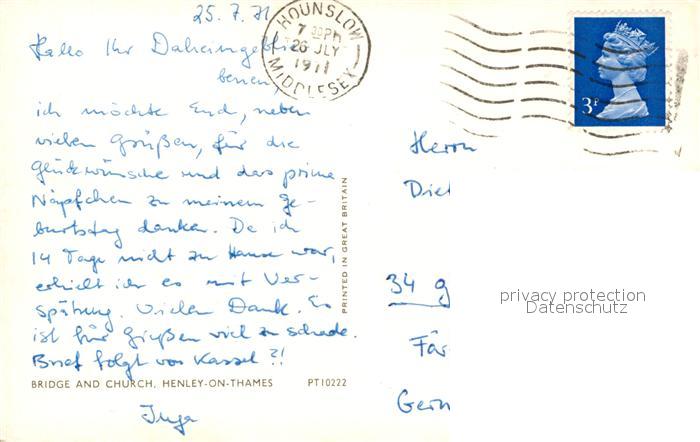 25.7.71
Hallo Ihr Daheimgeblie-
benen,
ich möchte Euch, neben
vielen Grüßen, für die
Glückwünsche und das prima
Näpfchen zu meinem Ge-
burtstag danken. Da ich
14 Tage nicht zu Hause war,
erhielt ich es mit Ver-
spätung. Vielen Dank. Es
ist für Gießen viel zu schade.
Brief folgt von Kassel?!
BRIDGE AND CHURCH, HENLEY-ON-THAMES PT10222
Inga
PRINTED IN GREAT BRITAIN
HOUNSLOW
7 PM
26 JLY
1971
MIDDLESEX
3P
Herrn
Diet
34 g
privacy protection
Datenschutz
Far
Germ